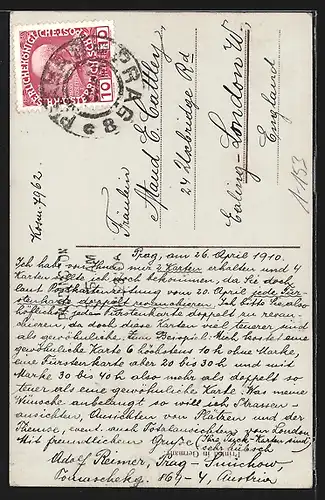 10 10
PRAG 8
Korr. 7962.
Fräulein
Maud E. Cattley
21 Uxbridge Rd
Ealing-London W.
England
Prag, am 26. April 1910.
Ich habe von Ihnen nur 2 Karten erhalten und 4
Karten sollte ich noch bekommen, da Sie doch
laut Postkartenzeitung vom 20. April jede Für-
stenkarte doppelt revanchieren. Ich bitte Sie also
höflichst, jeden Fürstenkarte doppelt zu revan-
chieren, da doch diese Karten viel teurer sind
als gewöhnliche. Zum Beispiel: Mich kostet eine
gewöhnliche Karte 6 höchstens 10 h ohne Marke,
eine Fürstenkarte aber 20 bis 30 h und mit
Marke 30 bis 40 h also mehr als doppelt so
teuer als eine gewöhnliche Karte. Was meine
Wünsche anbelangt so will ich Strassen-
ansichten, Ansichten von Plätzen und der
Themse, event. auch Totalansichten von London.
Mit freundlichem Grusse Ihre Tuck-Karten sind
sehr hübsch
Adolf Reimer, Prag-Smichow,
564-4, Austria
Printed in Germany